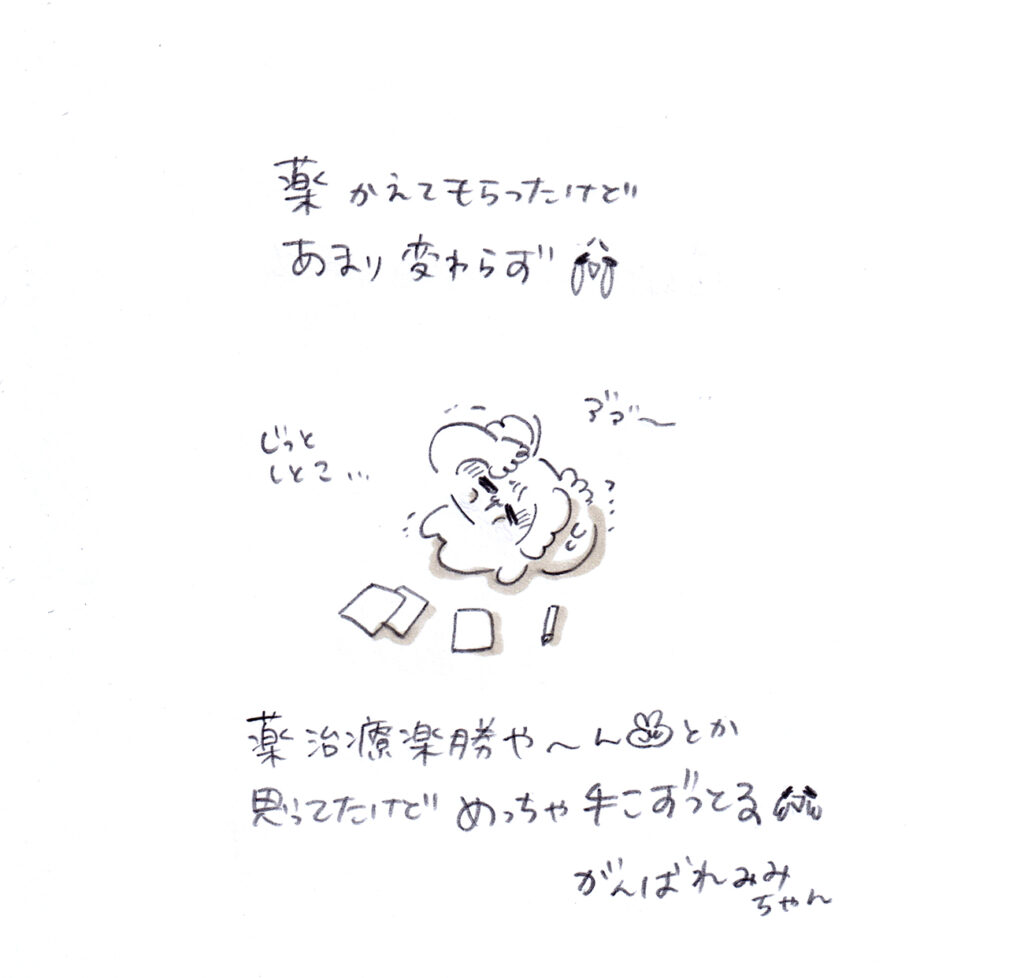 薬 かえてもらったけど
あまり変わらず
じっと
しとこ…
ア゛ア゛〜
薬治療楽勝や〜んとか
思ってたけど めっちゃ手こずっとる
がんばれみみ
ちゃん